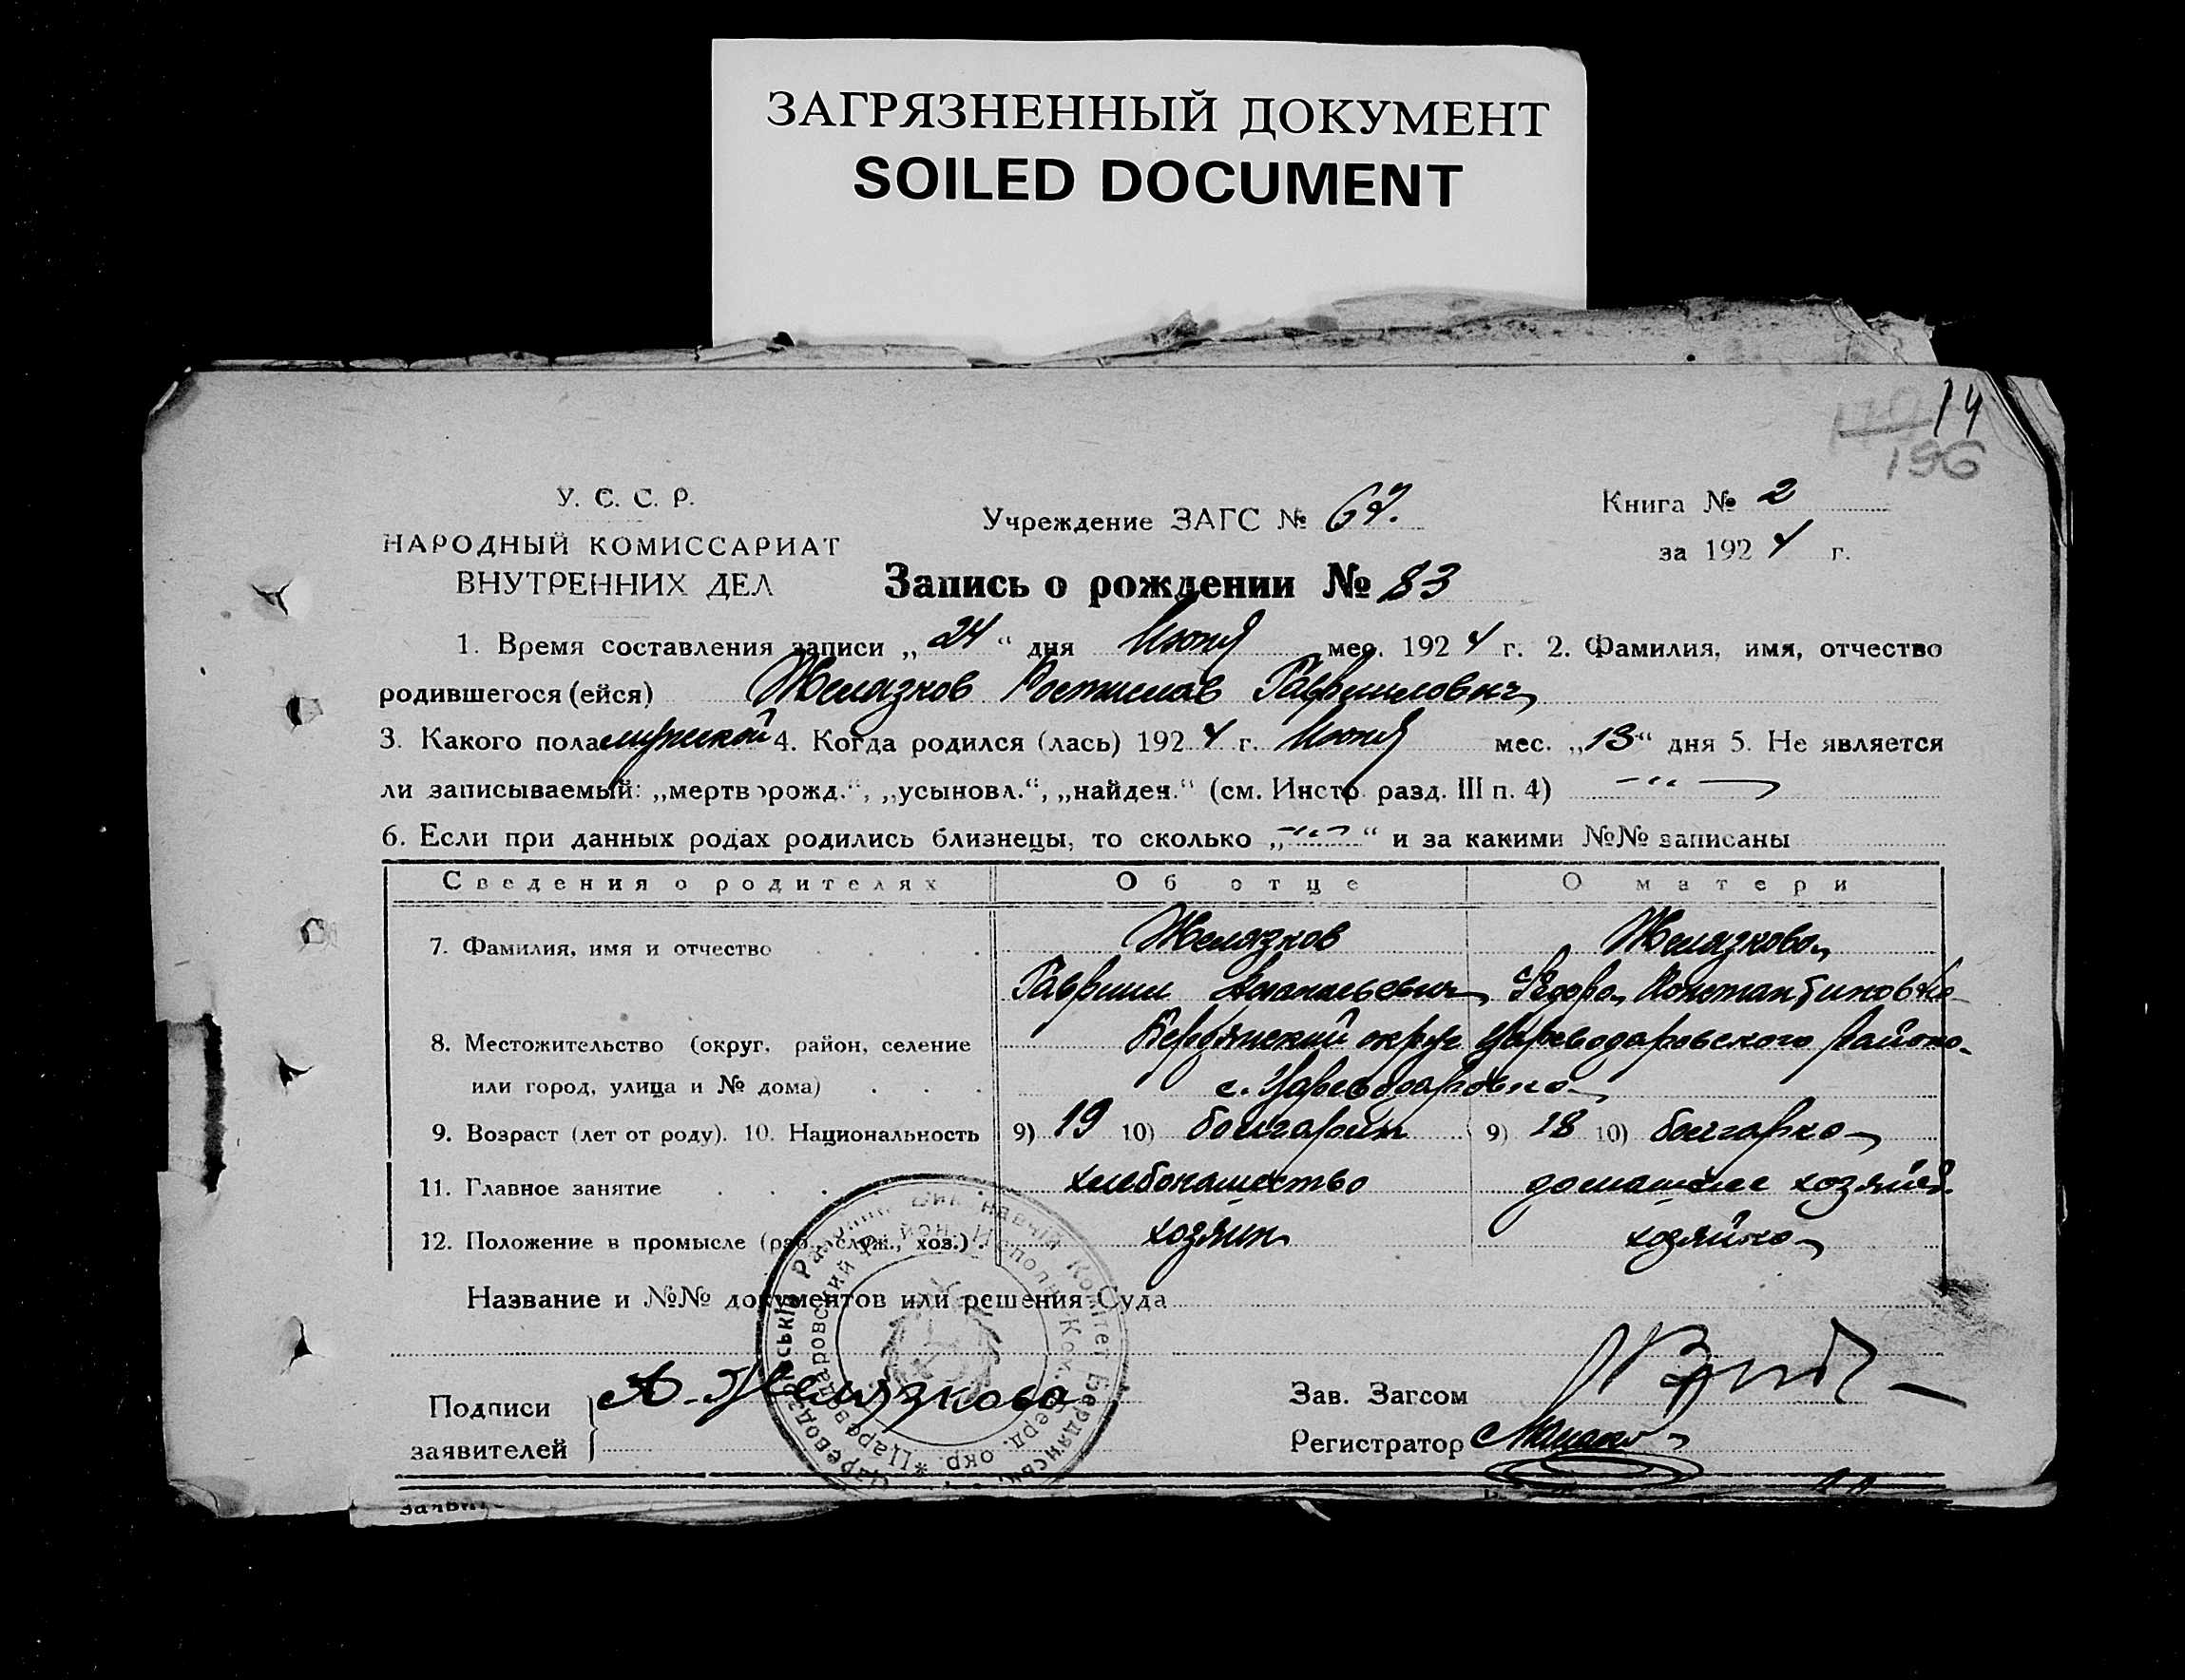 ЗАГРЯЗНЕННЫЙ ДОКУМЕНТ
SOILED DOCUMENT
14
196
У. С. С. Р.
НАРОДНЫЙ КОМИССАРИАТ
ВНУТРЕННИХ ДЕЛ
Учреждение ЗАГС № 67.
Книга № 2
за 1924 г.
Запись о рождении № 83
1. Время составления записи „24“ дня Июня мес. 1924 г. 2. Фамилия, имя, отчество
родившегося (ейся) Желязков Ростислав Гавриилович
3. Какого пола мужской 4. Когда родился (лась) 1924 г. Июня мес. „13“ дня 5. Не является
ли записываемый: „мертворожд.“, „усыновл.“, „найден.“ (см. Инстр. разд. III п. 4) — “ —
6. Если при данных родах родились близнецы, то сколько „-“-“ и за какими №№ записаны
Сведения о родителях Об отце О матери
7. Фамилия, имя и отчество Желязков Желязкова
Гавриил Федора Константиновна
8. Местожительство (округ, район, селение Бердянский округ Цареводаровского района
или город, улица и № дома) с. Цареводаровка
9. Возраст (лет от роду). 10. Национальность 9) 19 10) болгарин 9) 18 10) болгарка
11. Главное занятие хлебопашество домашнее хозяйст.
12. Положение в промысле (раб., служ., хоз.) хозяин хозяйка
Название и №№ документов или решения Суда
Подписи
заявителей
А. Желязкова
Зав. Загсом
Регистратор
Цареводарівський Виконавчій Комітет Бердянськ.
*Цареводаровский Район. Исполн. Ком. Берд. окр.